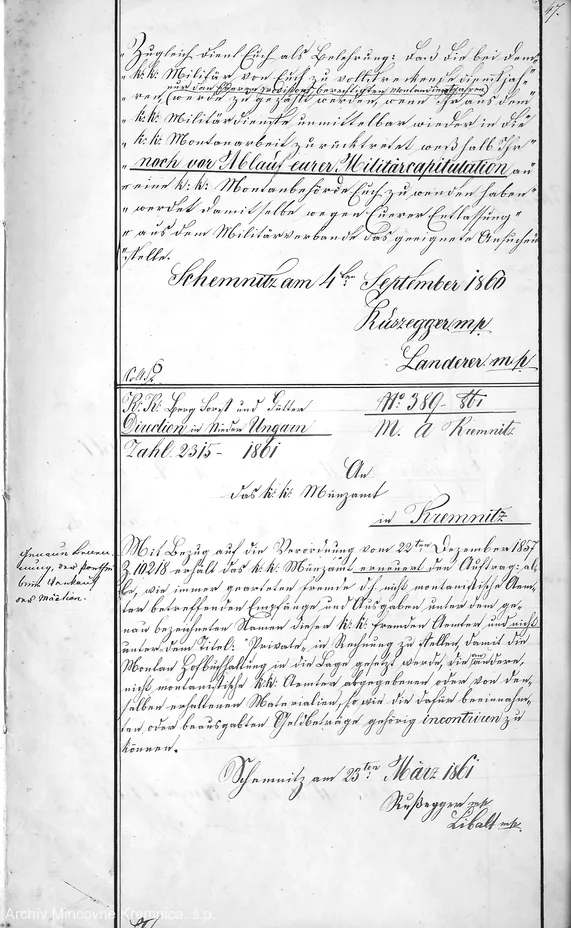 47.
„Zugleich dient Euch als Belehrung: daß die bei dem“
„k: k: Militär von Euch zu vollstreckende dienstjah“
nur den Ihrem provisionsberechtigten Montandienstjahren
„ren, werde zu gezählt werden, wenn ihr aus dem“
„k: k: Militärdienste unmittelbar wieder in die“
„k: k: Montanarbeit zurücktretet weßhalb Ihr“
„noch vor Ablauf eurer Militärcapitulation an“
„eine k: k: Montanbehörde Euch zu wenden haben“
„werdet damit selbe wegen Euerer Entlassung“
„aus dem Militärverbande das geeignete Ansuchen
„stelle.
Schemnitz am 4ten September 1860
Rußegger mp
Landerer m.p.
K: K: Berg Forst und Güter
Direction in Nieder Ungarn
Zahl 2315 - 1861
No 389 - 861
M. A Kremnitz
An
das k: k: Münzamt
in Kremnitz
Genaue Benen-
nung, der Parthei
beim Verkauf
der Mation.
Mit Bezug auf die Verordnung vom 22ten Dezember 1857
Z 10218 erhält das k: k: Münzamt erneuert den Auftrag: al
le, wie immer gearteten fremde d. h. nicht montanistische Aem-
ter betreffenden Empfänge und Ausgaben unter den ge-
nau bezeichneten Namen dieser k: k: fremden Aemter und nicht
unter dem Titel: „Private“ in Rechnung zu stellen, damit die
Montan Hofbuchhaltung in die Lage gesetzt werde, die an andere,
nicht montanistische k: k: Aemter abgegebenen oder von den-
selben erhaltenen Materialien, so wie die dafür beeinnahm-
ten oder beausgabten Geldbeträge gehörig incontriren zu
können.
Schemnitz am 25ten März 1861
Rußegger mp
Libalt mp.
Archív Mincovne Kremnica, š.p.